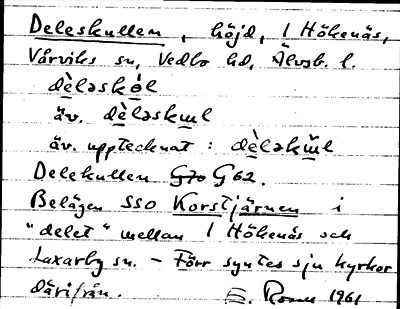 Deleskullen, höjd, 1 Hökenäs,
Vårviks sn, Vedbo hd, Älvsb. l.
dèləskɷ́l
äv. dèləskɯl
äv. upptecknat : dèləkɯ̆l
Delekullen G70 G62.
Belägen SSO Korstjärnen i
"delet" mellan 1 Hökenäs och
Laxarby sn. – Förr syntes sju kyrkor
därifrån. E. Rosell 1961